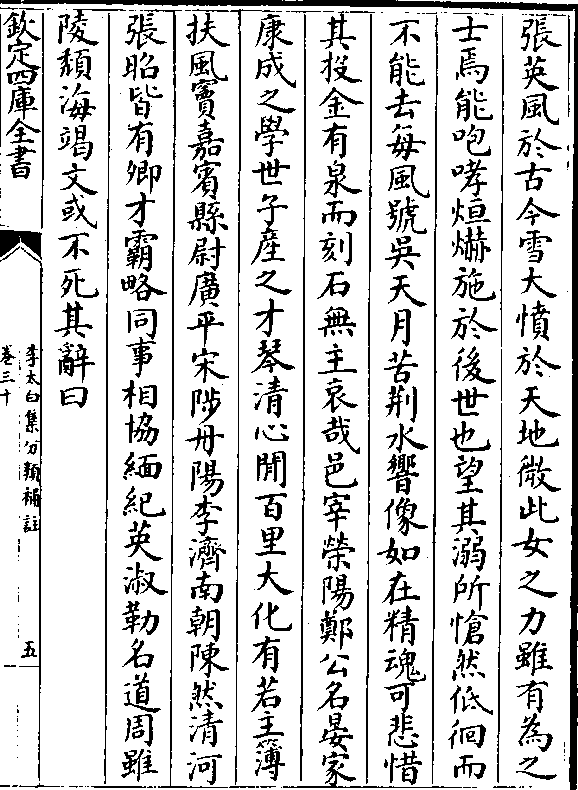 張英風於古今雪大憤於天地微此女之力雖有為之
士焉能咆哮烜爀施於後世也望其溺所愴然低徊而
不能去每風號吳天月苦荆水響像如在精魂可悲惜
其投金有泉而刻石無主哀哉邑宰榮陽鄭公名晏家
康成之學世子産之才琴清心閒百里大化有若主簿
扶風竇嘉賓縣尉廣平宋陟丹陽李濟南朝陳然清河
張昭皆有卿才霸略同事相協緬紀英淑勒名道周雖
陵頽海竭文或不死其辭曰
欽定四庫全書
李太白集分類補註
卷三十
五